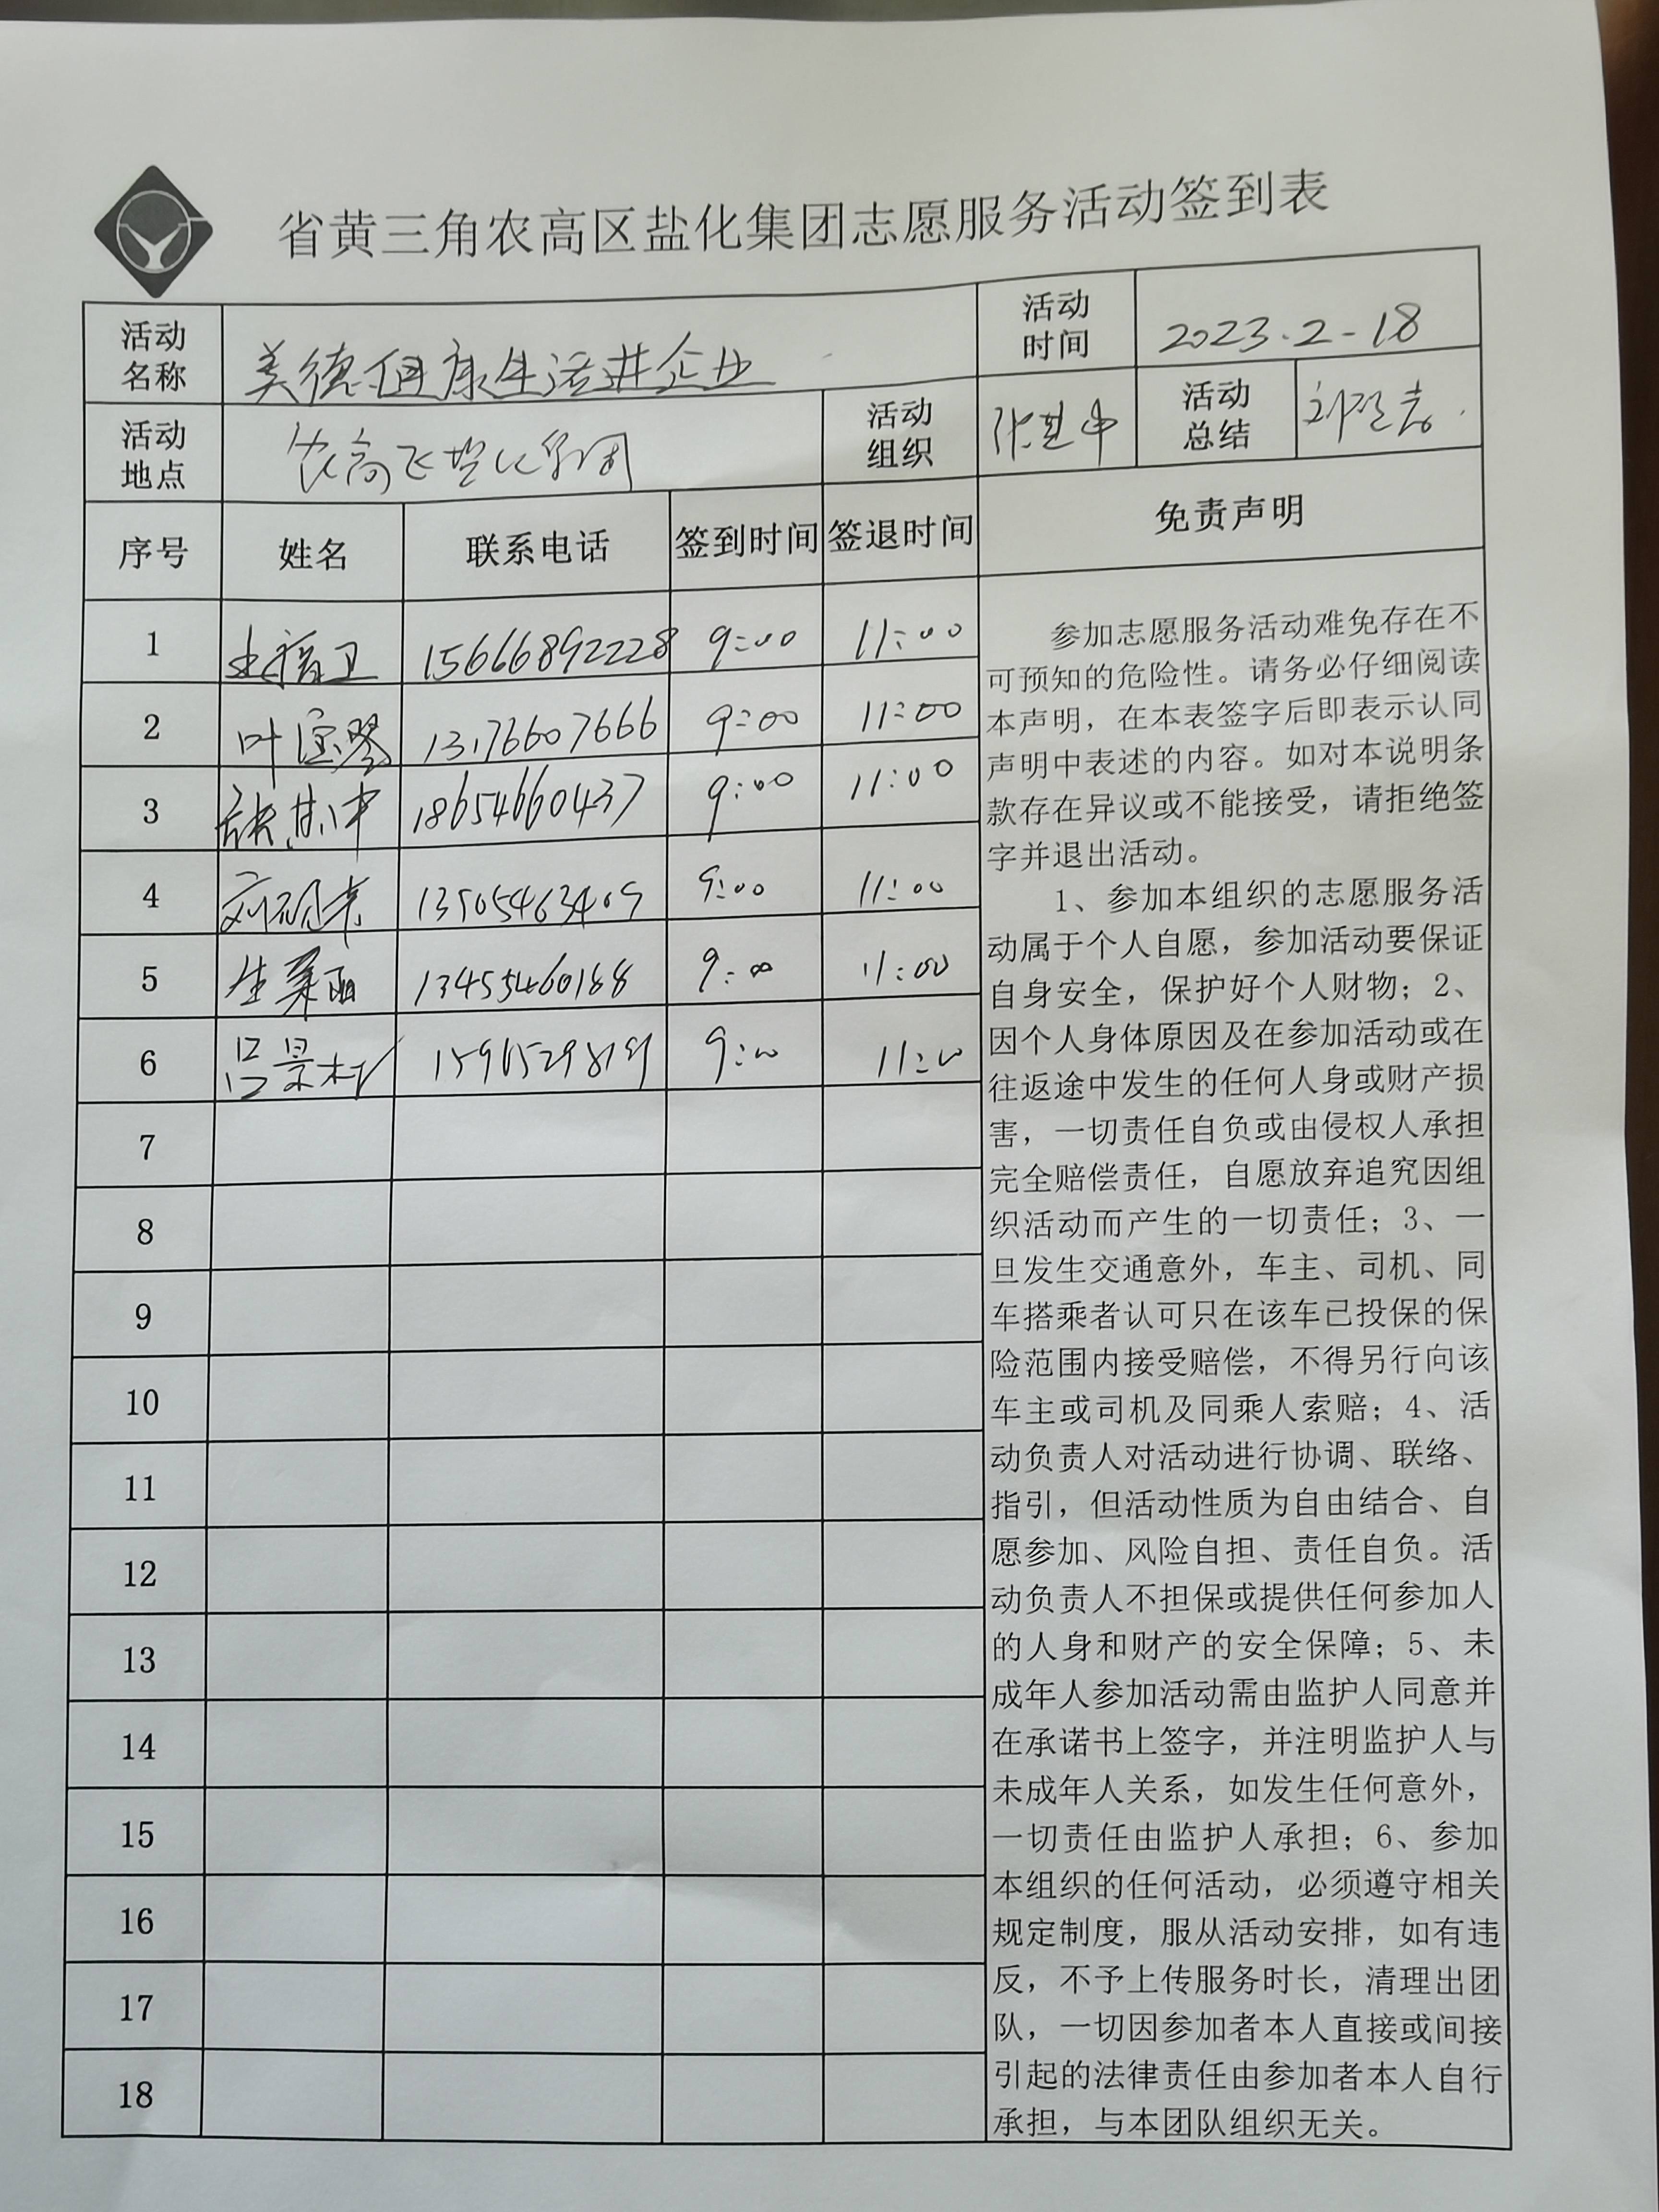 省黄三角农高区盐化集团志愿服务活动签到表
活动名称 美德健康生活进企业 活动时间 2023.2-18
活动地点 农高区盐化集团 活动组织 张其中 活动总结
序号 姓名 联系电话 签到时间 签退时间 免责声明
1 15666892228 9:00 11:00
2 叶宝琴 13176607666 9:00 11:00
3 张其中 18654660437 9:00 11:00
4 13505463409 9:00 11:00
5 13455460188 9:00 11:00
6 吕景村 9:00 11:00
7
8
9
10
11
12
13
14
15
16
17
18
参加志愿服务活动难免存在不
可预知的危险性。请务必仔细阅读
本声明，在本表签字后即表示认同
声明中表述的内容。如对本说明条
款存在异议或不能接受，请拒绝签
字并退出活动。
1、参加本组织的志愿服务活
动属于个人自愿，参加活动要保证
自身安全，保护好个人财物；2、
因个人身体原因及在参加活动或在
往返途中发生的任何人身或财产损
害，一切责任自负或由侵权人承担
完全赔偿责任，自愿放弃追究因组
织活动而产生的一切责任；3、一
旦发生交通意外，车主、司机、同
车搭乘者认可只在该车已投保的保
险范围内接受赔偿，不得另行向该
车主或司机及同乘人索赔；4、活
动负责人对活动进行协调、联络、
指引，但活动性质为自由结合、自
愿参加、风险自担、责任自负。活
动负责人不担保或提供任何参加人
的人身和财产的安全保障；5、未
成年人参加活动需由监护人同意并
在承诺书上签字，并注明监护人与
未成年人关系，如发生任何意外，
一切责任由监护人承担；6、参加
本组织的任何活动，必须遵守相关
规定制度，服从活动安排，如有违
反，不予上传服务时长，清理出团
队，一切因参加者本人直接或间接
引起的法律责任由参加者本人自行
承担，与本团队组织无关。